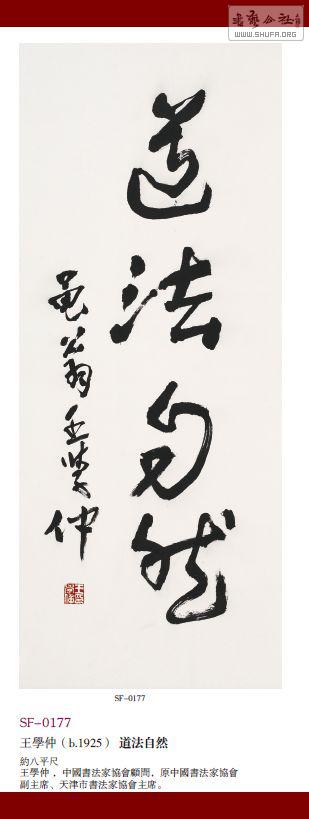 書藝公社
WWW.SHUFA.ORG
道法自然
黽翁王學仲
SF-0177
SF-0177
王學仲（b.1925） 道法自然
約八平尺
王學仲，中國書法家協會顧問，原中國書法家協會
副主席、天津市書法家協會主席。